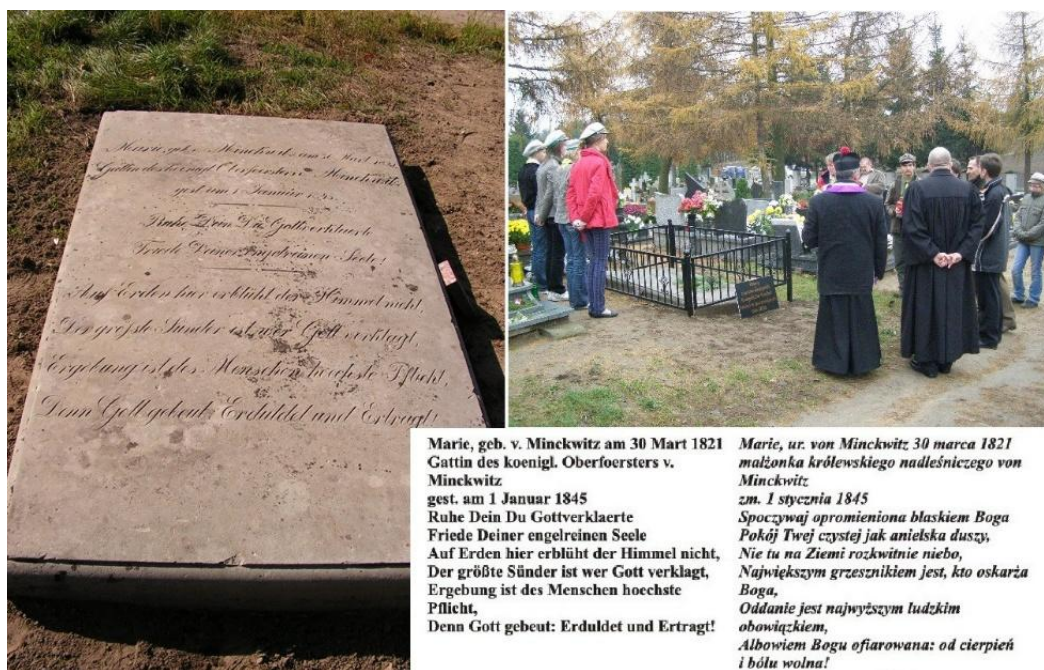 Marie, geb. v. Minckwitz am Mart
Gattin des koenigl. Oberfoersters v. Minckwitz
gest. am 1 Januar
Ruhe Dein Du Gottverklaerte
Friede Deiner Engelreinen Seele!
Auf Erden hier erblüht der Himmel nicht,
Der größte Sünder ist, wer Gott verklagt,
Ergebung ist des Menschen hoechste Pflicht,
Denn Gott gebeut: Erduldet und Ertragt!
Marie, geb. v. Minckwitz am 30 Mart 1821
Gattin des koenigl. Oberfoersters v.
Minckwitz
gest. am 1 Januar 1845
Ruhe Dein Du Gottverklaerte
Friede Deiner engelreinen Seele
Auf Erden hier erblüht der Himmel nicht,
Der größte Sünder ist wer Gott verklagt,
Ergebung ist des Menschen hoechste
Pflicht,
Denn Gott gebeut: Erduldet und Ertragt!
Marie, ur. von Minckwitz 30 marca 1821
małżonka królewskiego nadleśniczego von
Minckwitz
zm. 1 stycznia 1845
Spoczywaj opromieniona blaskiem Boga
Pokój Twej czystej jak anielska duszy,
Nie tu na Ziemi rozkwitnie niebo,
Największym grzesznikiem jest, kto oskarża
Boga,
Oddanie jest najwyższym ludzkim
obowiązkiem,
Albowiem Bogu ofiarowana: od cierpień
i bólu wolna!